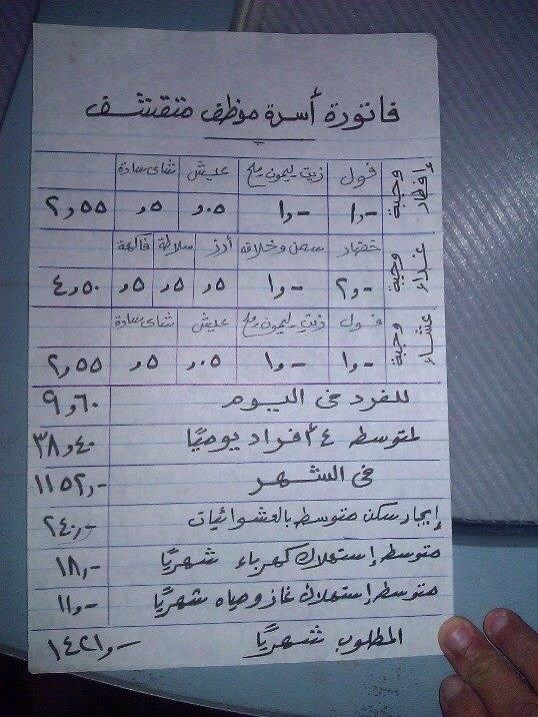 فاتورة أسرة موظف متقشف
وجبة إفطار فول زيت - ليمون - ملح عيش شاى سادة
١,- ١,- ,٠٥ ,٥ ٢,٥٥
وجبة غداء خضار سمن وخلافه أرز سلاطة فاكهة
٢,- ١,- ,٥ ,٥ ,٥ ٤,٥٠
وجبة عشاء فول زيت - ليمون - ملح عيش شاى سادة
١,- ١,- ,٠٥ ,٥ ٢,٥٥
للفرد فى اليوم ٩,٦٠
لمتوسط ٤ أفراد يوميًا ٣٨,٤٠
فى الشهر ١١٥٢,-
إيجار سكن متوسط بالعشوائيات ٢٤٠,-
متوسط إستهلاك كهرباء شهريًا ١٨,-
متوسط إستهلاك غاز ومياه شهريًا ١١,-
المطلوب شهريًا ١٤٢١,-